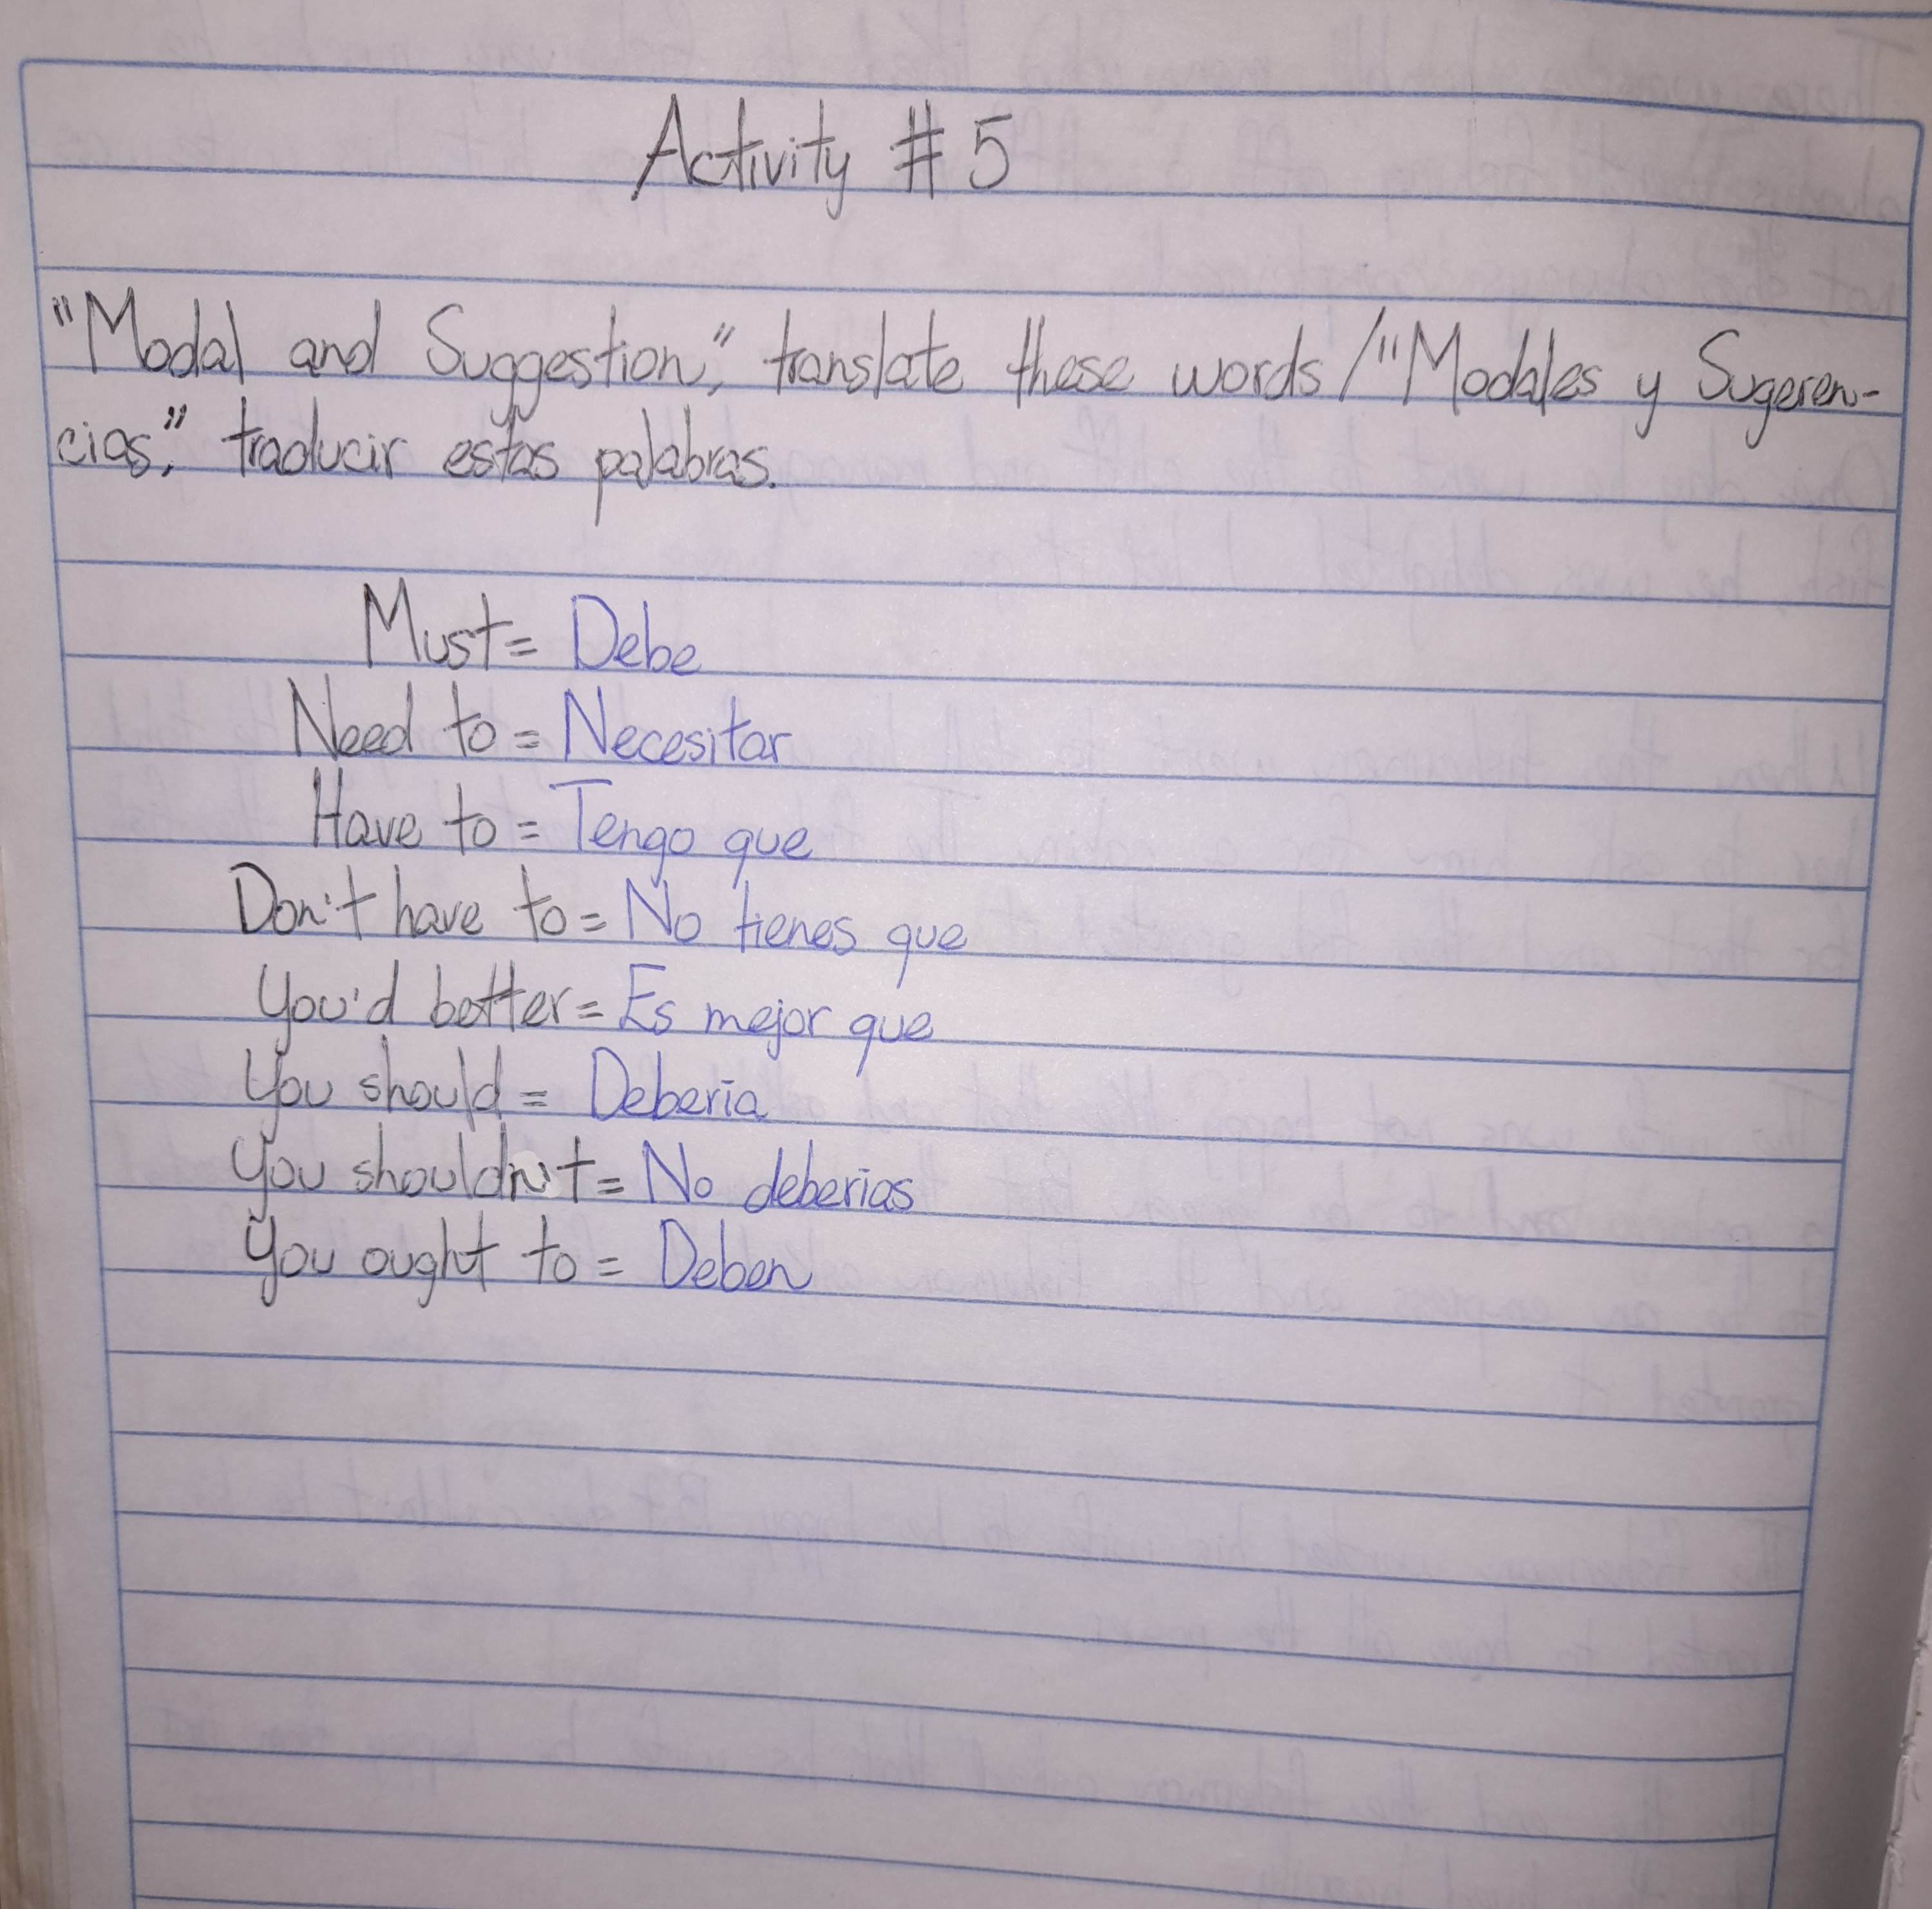 Activity # 5
"Modal and Suggestion," translate these words / "Modales y Sugeren-
cias," traducir estas palabras.
Must = Debe
Need to = Necesitar
Have to = Tengo que
Don't have to = No tienes que
You'd better = Es mejor que
You should = Debería
You shouldn't = No deberías
You ought to = Deben